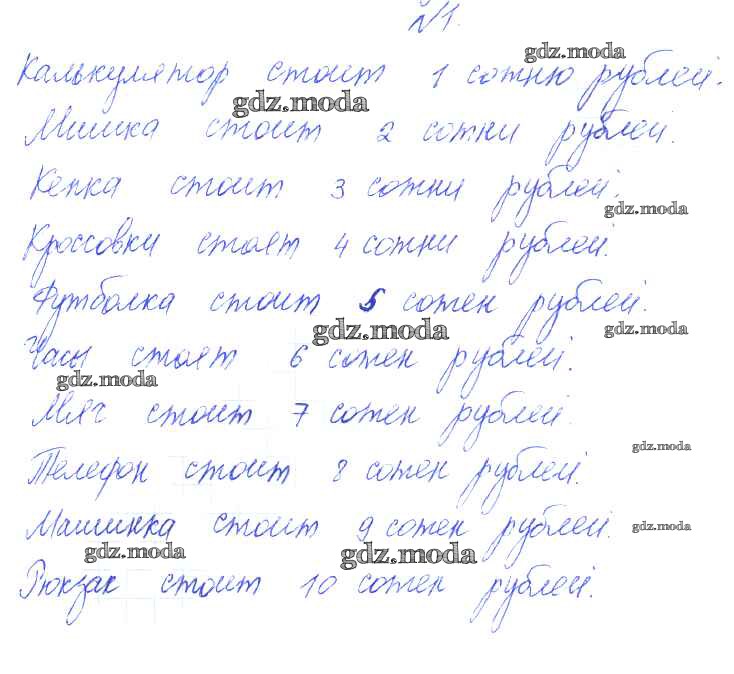 №1.
gdz.moda
Калькулятор стоит 1 сотню рублей.
gdz.moda
Мишка стоит 2 сотни рублей.
Кепка стоит 3 сотни рублей.
gdz.moda
Кроссовки стоят 4 сотни рублей.
Футболка стоит 5 сотен рублей.
gdz.moda gdz.moda
Часы стоят 6 сотен рублей.
gdz.moda
Мяч стоит 7 сотен рублей.
gdz.moda
Телефон стоит 8 сотен рублей.
Машинка стоит 9 сотен рублей.
gdz.moda
gdz.moda gdz.moda
Рюкзак стоит 10 сотен рублей.